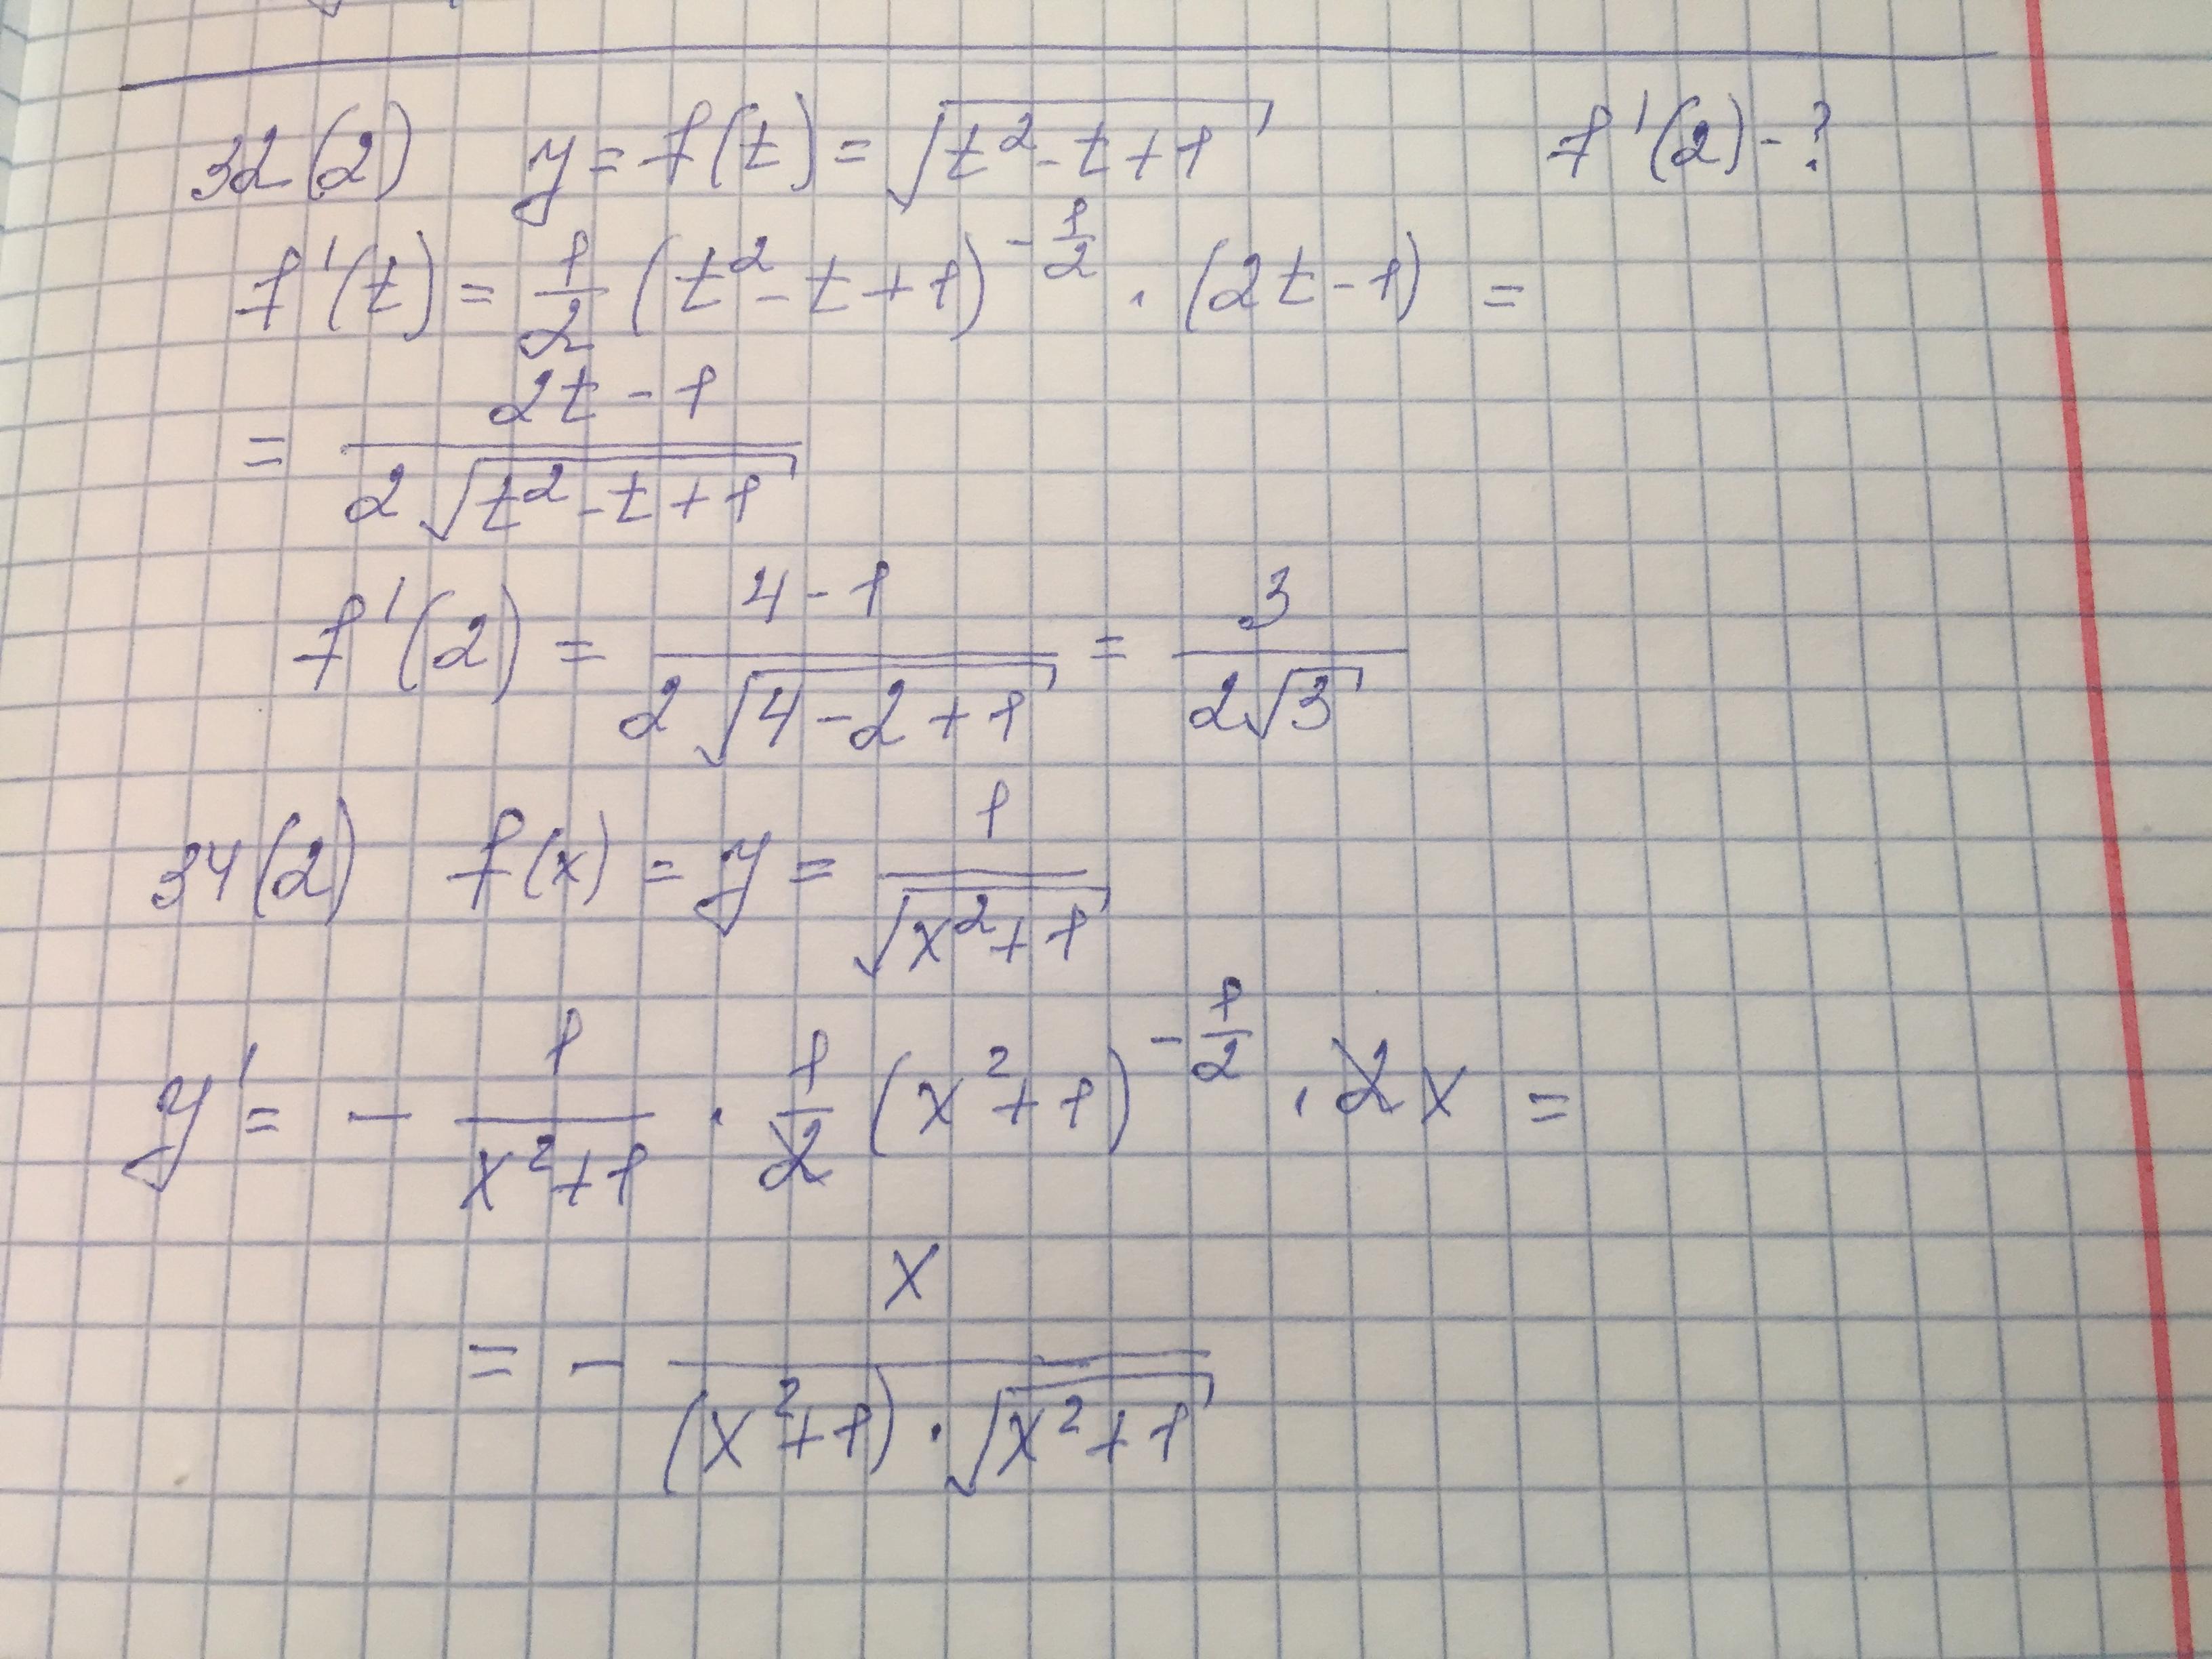 32(2) y = f(t) = √(t² - t + 1) f'(2) - ?
f'(t) = 1/2 (t² - t + 1)^(-1/2) · (2t - 1) =
= (2t - 1)/(2√(t² - t + 1))
f'(2) = (4 - 1)/(2√(4 - 2 + 1)) = 3/(2√3)
34(2) f(x) = y = 1/√(x² + 1)
y' = - 1/(x² + 1) · 1/2 (x² + 1)^(-1/2) · 2x =
= - x/((x² + 1) · √(x² + 1))